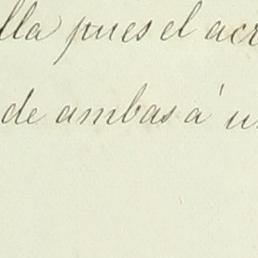 lla pues el acr
de ambas á u